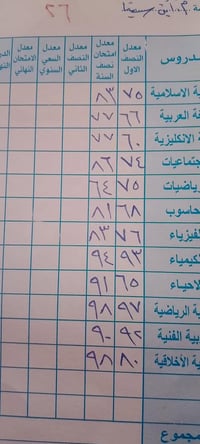 ٢٦
دروس
معدل النصف الاول
معدل امتحان نصف السنة
معدل النصف الثاني
معدل السعي السنوي
معدل الامتحان النهائي
ية الاسلامية ٧٥ ٨٣
ة العربية ٦٦ ٧٧
ة الانكليزية ٦٠ ٧٧
جتماعيات ٧٤ ٨٦
رياضيات ٧٥ ٦٤
حاسوب ٦٨ ٨١
فيزياء ٧٦ ٨٣
كيمياء ٩٣ ٩٤
لاحياء ٦٥ ٩١
ة الرياضية ٩٧ ٩٨
ية الفنية ٩٢ ٩٠
ية الأخلاقية ٨٠ ٩٨
مجموع